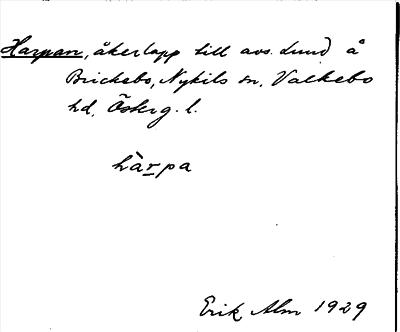 Harpan, åkerlapp till avs. Lund å
Brickebo, Nykils sn, Valkebo
hd, Österg. l.
hàrpa
Erik Alm 1929